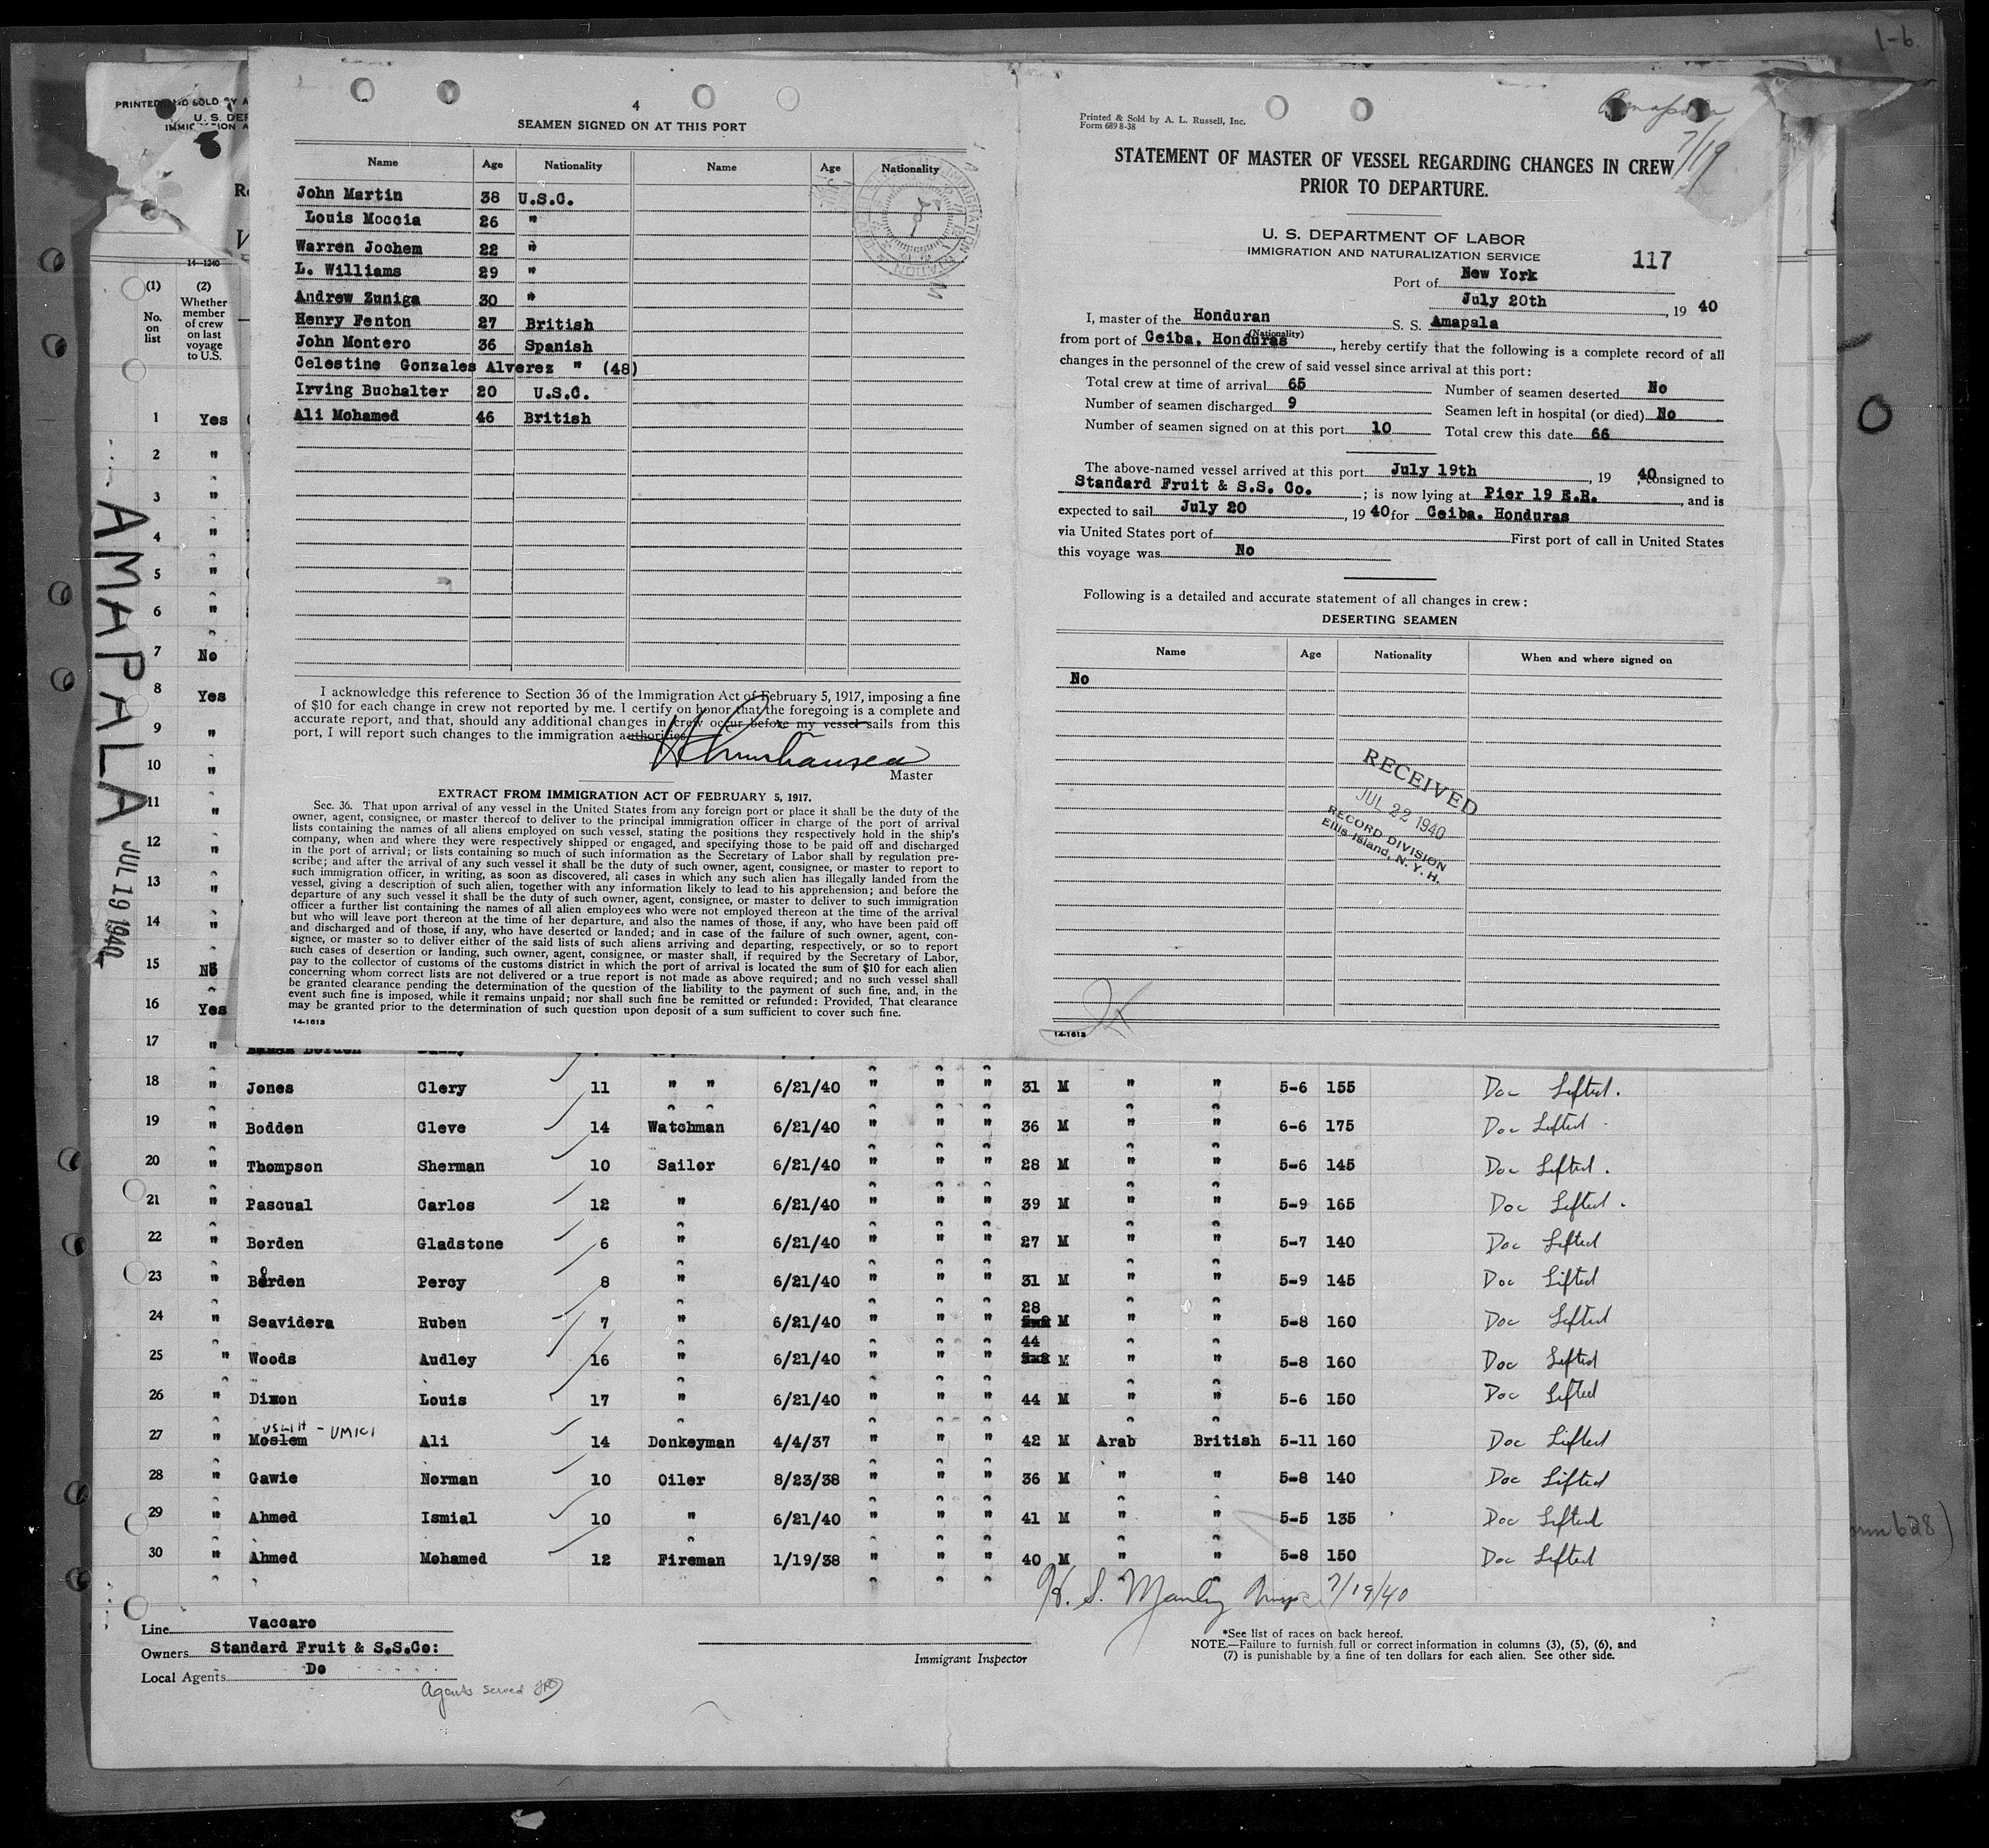 1-6
PRINTED AND SOLD BY A
U. S. DEP
IMMIGRATION A
14-1240
(1) (2)
No. on list
Whether member of crew on last voyage to U.S.
1 Yes
2 "
3 "
4 "
5 "
6 "
7 No
8 Yes
9 "
10 "
11 "
12 "
13 "
14 "
15 No
16 Yes
17 "
AMAPALA JUL 19 1940
4
SEAMEN SIGNED ON AT THIS PORT
Name Age Nationality Name Age Nationality
John Martin 38 U.S.C.
Louis Moccia 26 "
Warren Jochem 22 "
L. Williams 29 "
Andrew Zuniga 30 "
Henry Fenton 27 British
John Montero 36 Spanish
Celestine Gonzales Alverez " (48)
Irving Buchalter 20 U.S.C.
Ali Mohamed 46 British
I acknowledge this reference to Section 36 of the Immigration Act of February 5, 1917, imposing a fine
of $10 for each change in crew not reported by me. I certify on honor that the foregoing is a complete and
accurate report, and that, should any additional changes in crew occur before my vessel sails from this
port, I will report such changes to the immigration authorities.
Master
EXTRACT FROM IMMIGRATION ACT OF FEBRUARY 5, 1917.
Sec. 36. That upon arrival of any vessel in the United States from any foreign port or place it shall be the duty of the
owner, agent, consignee, or master thereof to deliver to the principal immigration officer in charge of the port of arrival
lists containing the names of all aliens employed on such vessel, stating the positions they respectively hold in the ship's
company, when and where they were respectively shipped or engaged, and specifying those to be paid off and discharged
in the port of arrival; or lists containing so much of such information as the Secretary of Labor shall by regulation pre-
scribe; and after the arrival of any such vessel it shall be the duty of such owner, agent, consignee, or master to report to
such immigration officer, in writing, as soon as discovered, all cases in which any such alien has illegally landed from the
vessel, giving a description of such alien, together with any information likely to lead to his apprehension; and before the
departure of any such vessel it shall be the duty of such owner, agent, consignee, or master to deliver to such immigration
officer a further list containing the names of all alien employees who were not employed thereon at the time of the arrival
but who will leave port thereon at the time of her departure, and also the names of those, if any, who have been paid off
and discharged and of those, if any, who have deserted or landed; and in case of the failure of such owner, agent, con-
signee, or master so to deliver either of the said lists of such aliens arriving and departing, respectively, or so to report
such cases of desertion or landing, such owner, agent, consignee, or master shall, if required by the Secretary of Labor,
pay to the collector of customs of the customs district in which the port of arrival is located the sum of $10 for each alien
concerning whom correct lists are not delivered or a true report is not made as above required; and no such vessel shall
be granted clearance pending the determination of the question of the liability to the payment of such fine, and, in the
event such fine is imposed, while it remains unpaid; nor shall such fine be remitted or refunded: Provided, That clearance
may be granted prior to the determination of such question upon deposit of a sum sufficient to cover such fine.
14-1613
Printed & Sold by A. L. Russell, Inc.
Form 689 8-38
Amapala
7/19
STATEMENT OF MASTER OF VESSEL REGARDING CHANGES IN CREW
PRIOR TO DEPARTURE.
U. S. DEPARTMENT OF LABOR
IMMIGRATION AND NATURALIZATION SERVICE
117
Port of New York
July 20th, 19 40
I, master of the Honduran S. S. Amapala
(Nationality)
from port of Ceiba, Honduras, hereby certify that the following is a complete record of all
changes in the personnel of the crew of said vessel since arrival at this port:
Total crew at time of arrival 65 Number of seamen deserted No
Number of seamen discharged 9 Seamen left in hospital (or died) No
Number of seamen signed on at this port 10 Total crew this date 66
The above-named vessel arrived at this port July 19th, 19 40, consigned to
Standard Fruit & S.S. Co.; is now lying at Pier 19 E.R., and is
expected to sail July 20, 19 40 for Ceiba, Honduras
via United States port of First port of call in United States
this voyage was No
Following is a detailed and accurate statement of all changes in crew:
DESERTING SEAMEN
Name Age Nationality When and where signed on
No
RECEIVED
JUL 22 1940
RECORD DIVISION
Ellis Island, N. Y. H.
14-1613
18 " Jones Clery 11 " " 6/21/40 " " " 31 M " " 5-6 155 Doc Lifted.
19 " Bodden Cleve 14 Watchman 6/21/40 " " " 36 M " " 6-6 175 Doc Lifted
20 " Thompson Sherman 10 Sailor 6/21/40 " " " 28 M " " 5-6 145 Doc Lifted.
21 " Pascual Carlos 12 " 6/21/40 " " " 39 M " " 5-9 165 Doc Lifted.
22 " Borden Gladstone 6 " 6/21/40 " " " 27 M " " 5-7 140 Doc Lifted
23 " Borden Percy 8 " 6/21/40 " " " 31 M " " 5-9 145 Doc Lifted
24 " Seavidera Ruben 7 " 6/21/40 " " " 28 M " " 5-8 160 Doc Lifted
25 " Woods Audley 16 " 6/21/40 " " " 44 M " " 5-8 160 Doc Lifted
26 " Dixon Louis 17 " 6/21/40 " " " 44 M " " 5-6 150 Doc Lifted
27 " Moslem Ali 14 Donkeyman 4/4/37 " " " 42 M Arab British 5-11 160 Doc Lifted
28 " Gawie Norman 10 Oiler 8/23/38 " " " 36 M " " 5-8 140 Doc Lifted
29 " Ahmed Ismial 10 " 6/21/40 " " " 41 M " " 5-5 135 Doc Lifted
30 " Ahmed Mohamed 12 Fireman 1/19/38 " " " 40 M " " 5-8 150 Doc Lifted
H. S. Manley 7/19/40
Line Vaccaro
Owners Standard Fruit & S.S.Co:
Local Agents Do
Agents served
Immigrant Inspector
*See list of races on back hereof.
NOTE.—Failure to furnish full or correct information in columns (3), (5), (6), and
(7) is punishable by a fine of ten dollars for each alien. See other side.